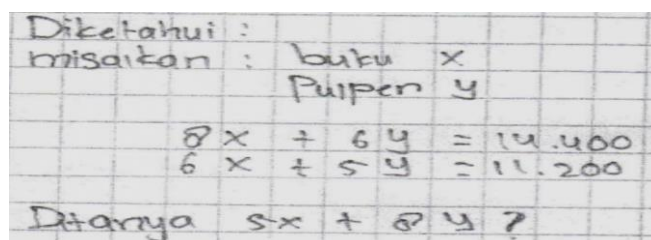 Diketahui :
misalkan : buku x
Pulpen y
8x + 6y = 14.400
6x + 5y = 11.200
Ditanya 5x + 8y ?